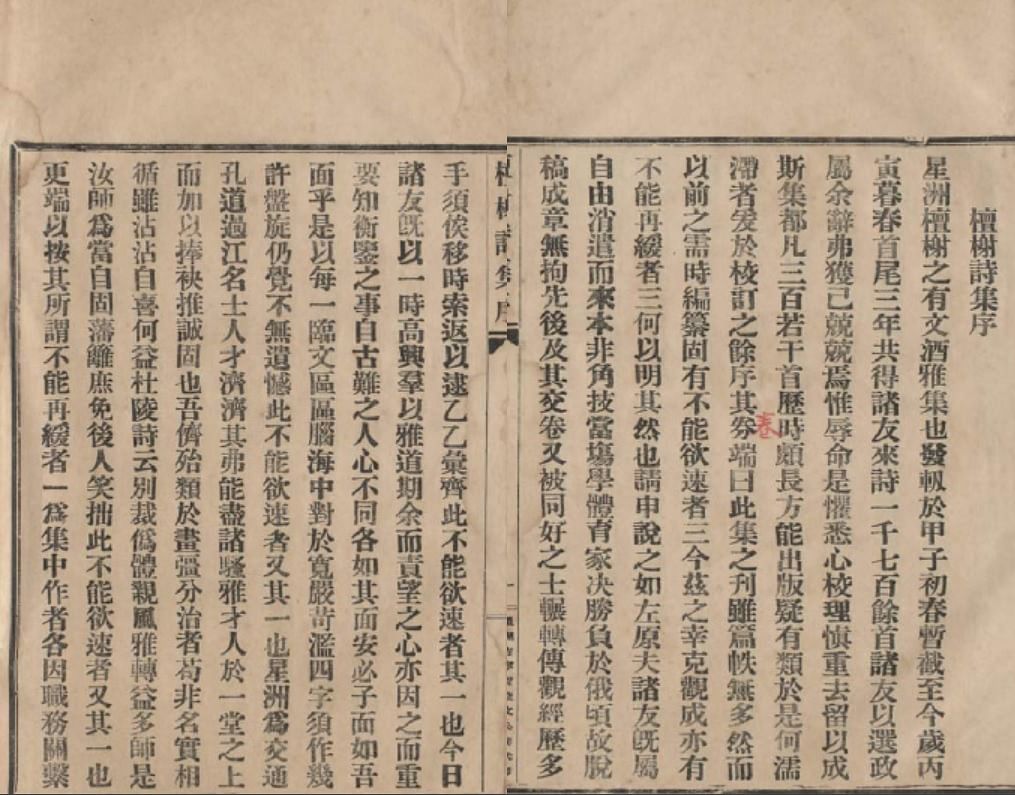 檀榭詩集序
星洲檀榭之有文酒雅集也發軔於甲子初春暫截至今歲丙
寅暮春首尾三年共得諸友來詩一千七百餘首諸友以選政
屬余辭弗獲已兢兢焉惟辱命是懼悉心校理愼重去留以成
斯集都凡三百若干首歷時頗長方能出版疑有類於是何濡
滯者爰於校訂之餘序其劵端曰此集之刊雖篇帙無多然而
卷
以前之需時編纂固有不能欲速者三今茲之幸克觀成亦有
不能再緩者三何以明其然也請申說之如左原夫諸友旣屬
自由消遣而來本非角技當塲學體育家决勝負於俄頃故脫
稿成章無拘先後及其交卷又被同好之士輾轉傳觀經歷多
檀榭詩集序
一
手須俟移時索返以逮乙乙彙齊此不能欲速者其一也今日
諸友旣以一時高興羣以雅道期余而責望之心亦因之而重
要知衡鑒之事自古難之人心不同各如其面安必子面如吾
面乎是以每一臨文區區腦海中對於寬嚴苛濫四字須作幾
許盤旋仍覺不無遺憾此不能欲速者又其一也星洲爲交通
孔道過江名士人才濟濟其弗能盡諸騷雅才人於一堂之上
而加以捧袂推誠固也吾儕殆類於畫彊分治者苟非名實相
循雖沾沾自喜何益杜陵詩云別裁僞體親風雅轉益多師是
汝師爲當自固藩籬庶免後人笑拙此不能欲速者又其一也
更端以按其所謂不能再緩者一爲集中作者各因職務關繫